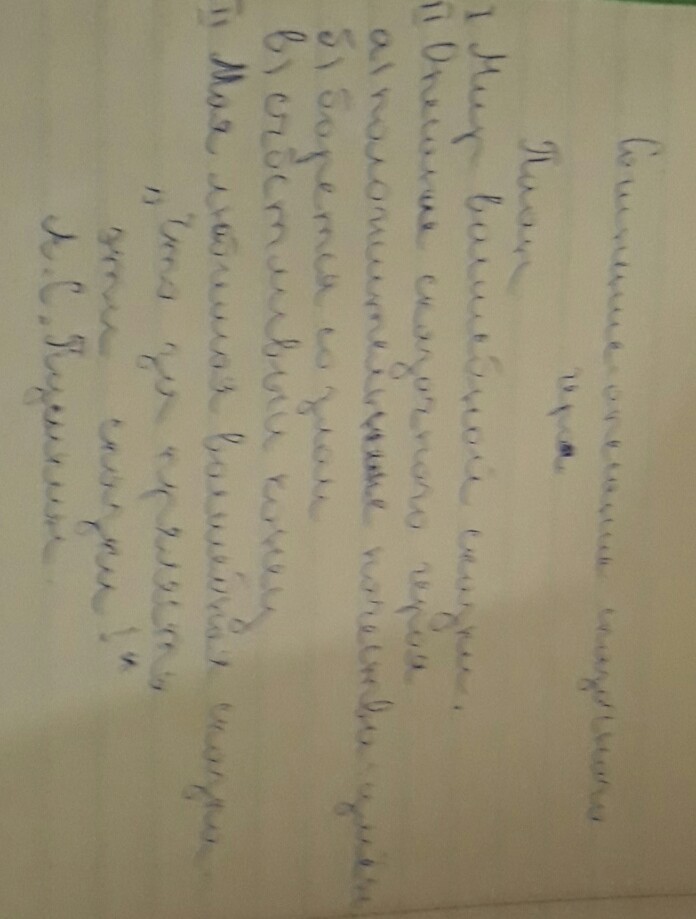 Сочинение описание сказочного
героя
План
I Мир волшебной сказки.
II Описание сказочного героя
а) положительные качества
б) борется со злом
в) счастливый конец
II Моя любимая волшебная сказка
„Что за прелесть
эти сказки!“
А.С. Пушкин.